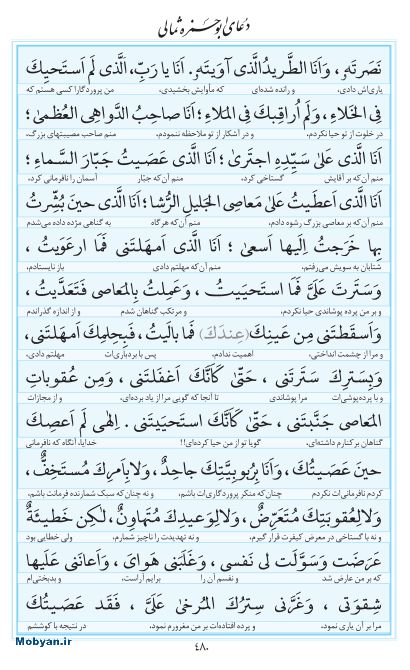 دعای ابوحمزه ثمالی
نَصَرتَهُ، وَاَنَا الطَّریدُ الَّذی آوَیتَهُ. اَنَا یا رَبِّ، اَلَّذی لَم اَستَحیِكَ
یاری‌اش دادی، و رانده شده‌ای که مأوایش بخشیدی، من پروردگارا کسی هستم که
فِی الخَلاءِ، وَلَم اُراقِبكَ فِی المَلاءِ؛ اَنَا صاحِبُ الدَّواهِی العُظمیٰ؛
در خلوت از تو حیا نکردم، و در آشکار از تو ملاحظه ننمودم، منم صاحب مصیبتهای بزرگ،
اَنَا الَّذی عَلیٰ سَیِّدِهِ اجتَریٰ؛ اَنَا الَّذی عَصَیتُ جَبّارَ السَّماءِ؛
منم آن که بر آقایش گستاخی کرد، منم آن که جبّار آسمان را نافرمانی کرد،
اَنَا الَّذی اَعطَیتُ عَلیٰ مَعاصِی الجَلیلِ الرُّشا؛ اَنَا الَّذی حینَ بُشِّرتُ
منم آن که بر معاصی بزرگ رشوه دادم، منم آن که هرگاه به گناهی مژده داده می‌شدم
بِها خَرَجتُ اِلَیها اَسعیٰ؛ اَنَا الَّذی اَمهَلتَنی فَمَا ارعَوَیتُ،
شتابان به سویش می‌رفتم، منم آن که مهلتم دادی باز نایستادم،
وَسَتَرتَ عَلَیَّ فَمَا استَحیَیتُ، وَعَمِلتُ بِالمَعاصی فَتَعَدَّیتُ،
و بر من پرده پوشاندی حیا نکردم، و مرتکب گناهان شدم و از اندازه گذراندم
وَاَسقَطتَنی مِن عَینِكَ (عِندَكَ) فَما بالَیتُ، فَبِحِلمِكَ اَمهَلتَنی،
و مرا از چشمت انداختی، اهمیت ندادم، پس با بردباری‌ات مهلتم دادی،
وَبِسِترِكَ سَتَرتَنی، حَتّیٰ کَاَنَّكَ اَغفَلتَنی، وَمِن عُقوباتِ
و با پرده‌پوشی‌ات مرا پوشاندی تا آنجا که گویی مرا از یاد برده‌ای، و از مجازات
المَعاصی جَنَّبتَنی، حَتّیٰ کَاَنَّكَ استَحیَیتَنی. اِلهٰی لَم اَعصِكَ
گناهان برکنارم داشته‌ای، گویا تو از من حیا کرده‌ای!! خدایا، آنگاه که نافرمانی
حینَ عَصَیتُكَ، وَاَنَا بِرُبوبِیَّتِكَ جاحِدٌ، وَلا بِاَمرِكَ مُستَخِفٌّ،
کردم نافرمانی‌ات نکردم چنان که منکر پروردگاری‌ات باشم، و نه چنان که سبک شمارنده فرمانت باشم،
وَلا لِعُقوبَتِكَ مُتَعَرِّضٌ، وَلا لِوَعیدِكَ مُتَهاوِنٌ، لٰکِن خَطیئَةٌ
و نه با گستاخی در معرض کیفرت قرار گیرم، و نه تهدیدت را ناچیز شمارم، ولی خطایی بود
عَرَضَت وَسَوَّلَت لی نَفسی، وَغَلَبَنی هَوایَ، وَاَعانَنی عَلَیها
که بر من عارض شد و نفسم آن را برایم آراست، و بدبختی‌ام
شِقوَتی، وَغَرَّنی سِترُكَ المُرخیٰ عَلَیَّ، فَقَد عَصَیتُكَ
مرا بر آن یاری نمود، و پرده افتاده‌ات بر من مغرورم نمود، در نتیجه با کوششم
۴۸۰
Mobyan.ir